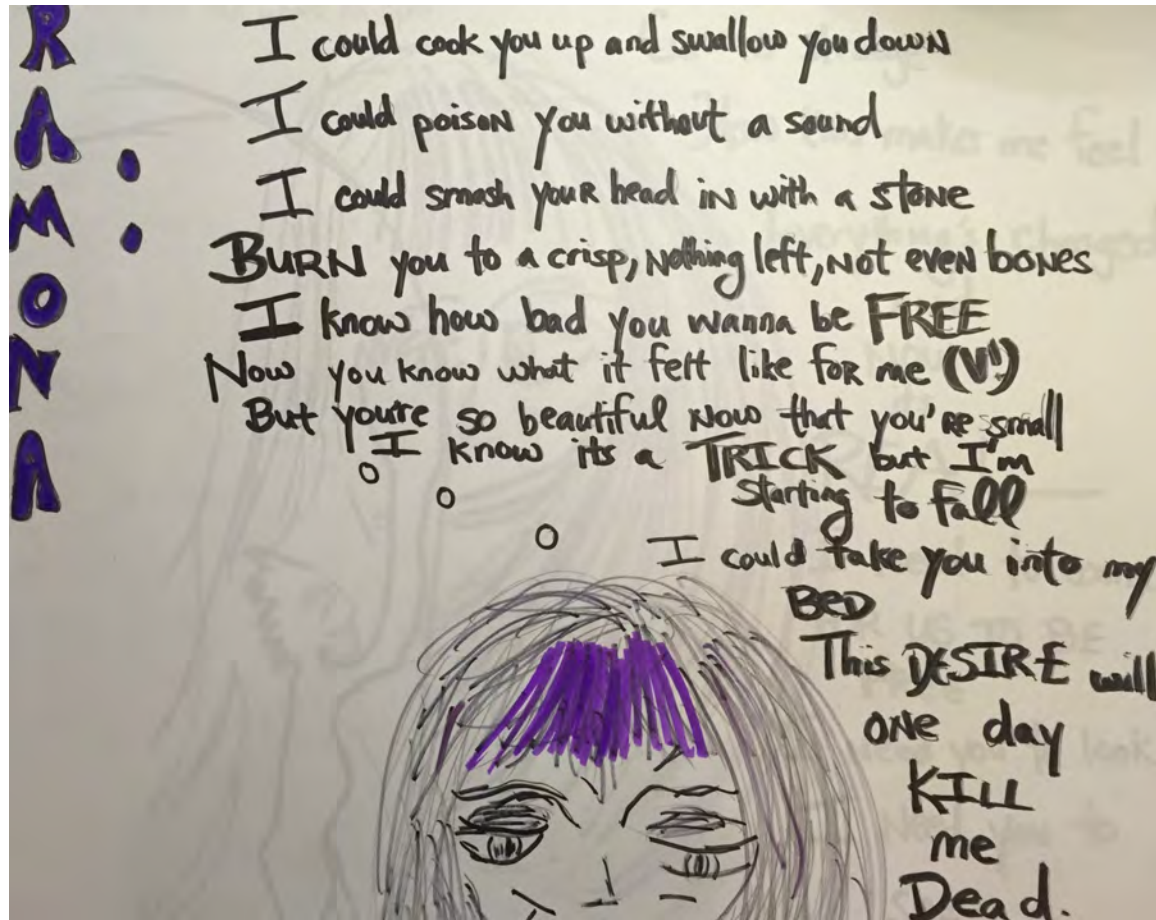 RAMONA:
I could cook you up and swallow you down
I could poison you without a sound
I could smash your head in with a stone
BURN you to a crisp, nothing left, not even bones
I know how bad you wanna be FREE
Now you know what it felt like for me
But you're so beautiful now that you're small
I know its a TRICK but I'm
starting to fall
I could take you into my
BED
This DESIRE will
one day
KILL
me
Dead.
makes me feel